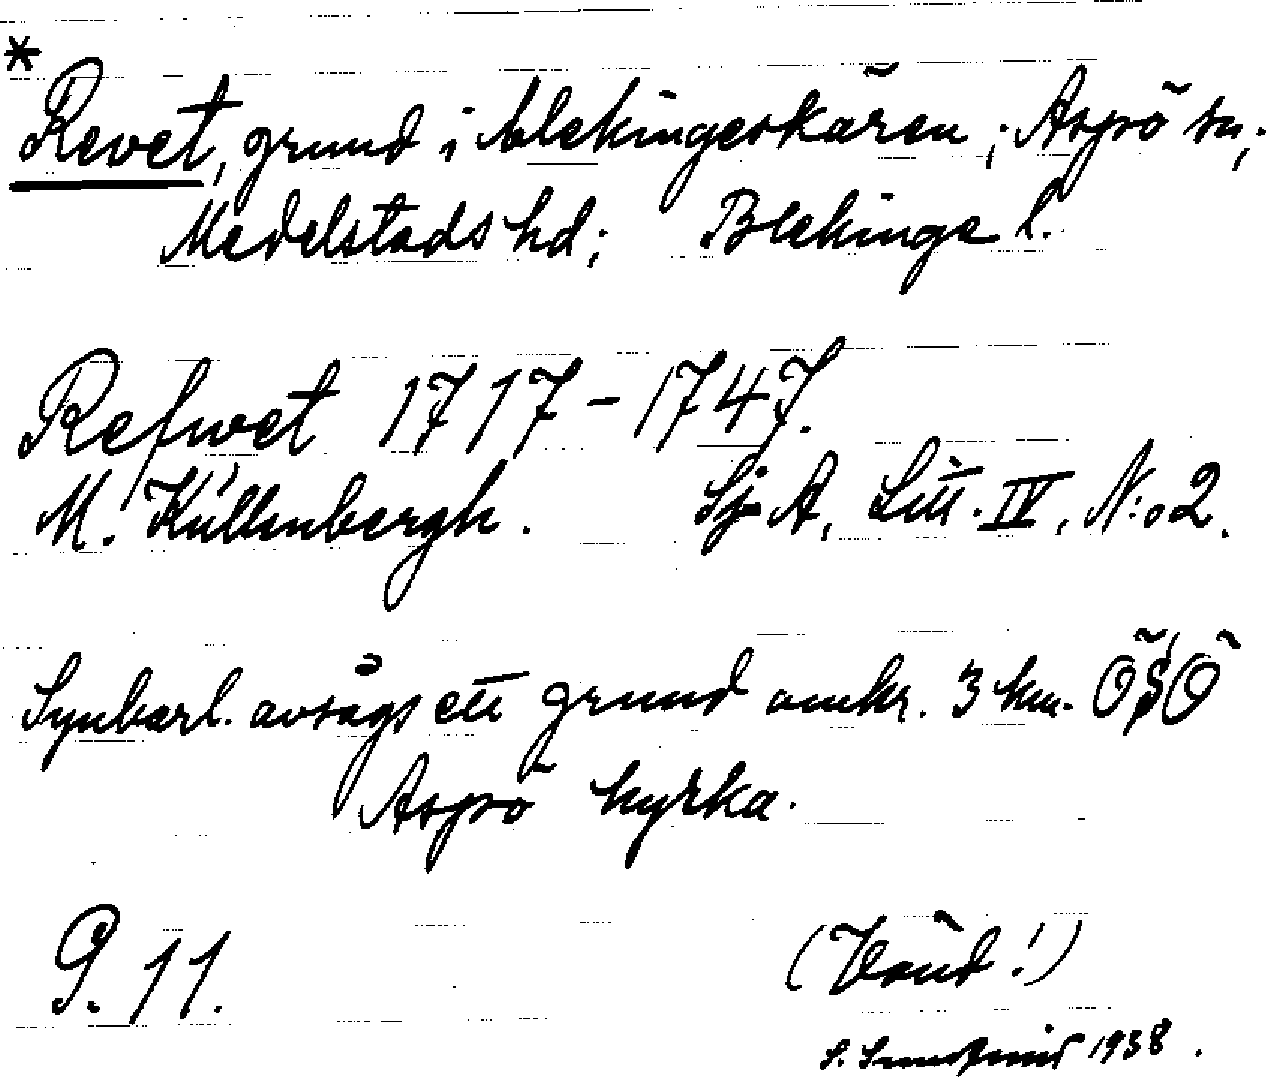 * Revet, grund i Blekingeskären; Aspö sn;
Medelstads hd; Blekinge l.
Refwet 1717-1747.
M. Küllenbergh. Sj. A, Litt. IV, N:o 2.
Synbarl. avsågs ett grund omkr. 3 km. ÖSÖ
Aspö kyrka.
G. 11.
(Vänd!)
S. 1938.